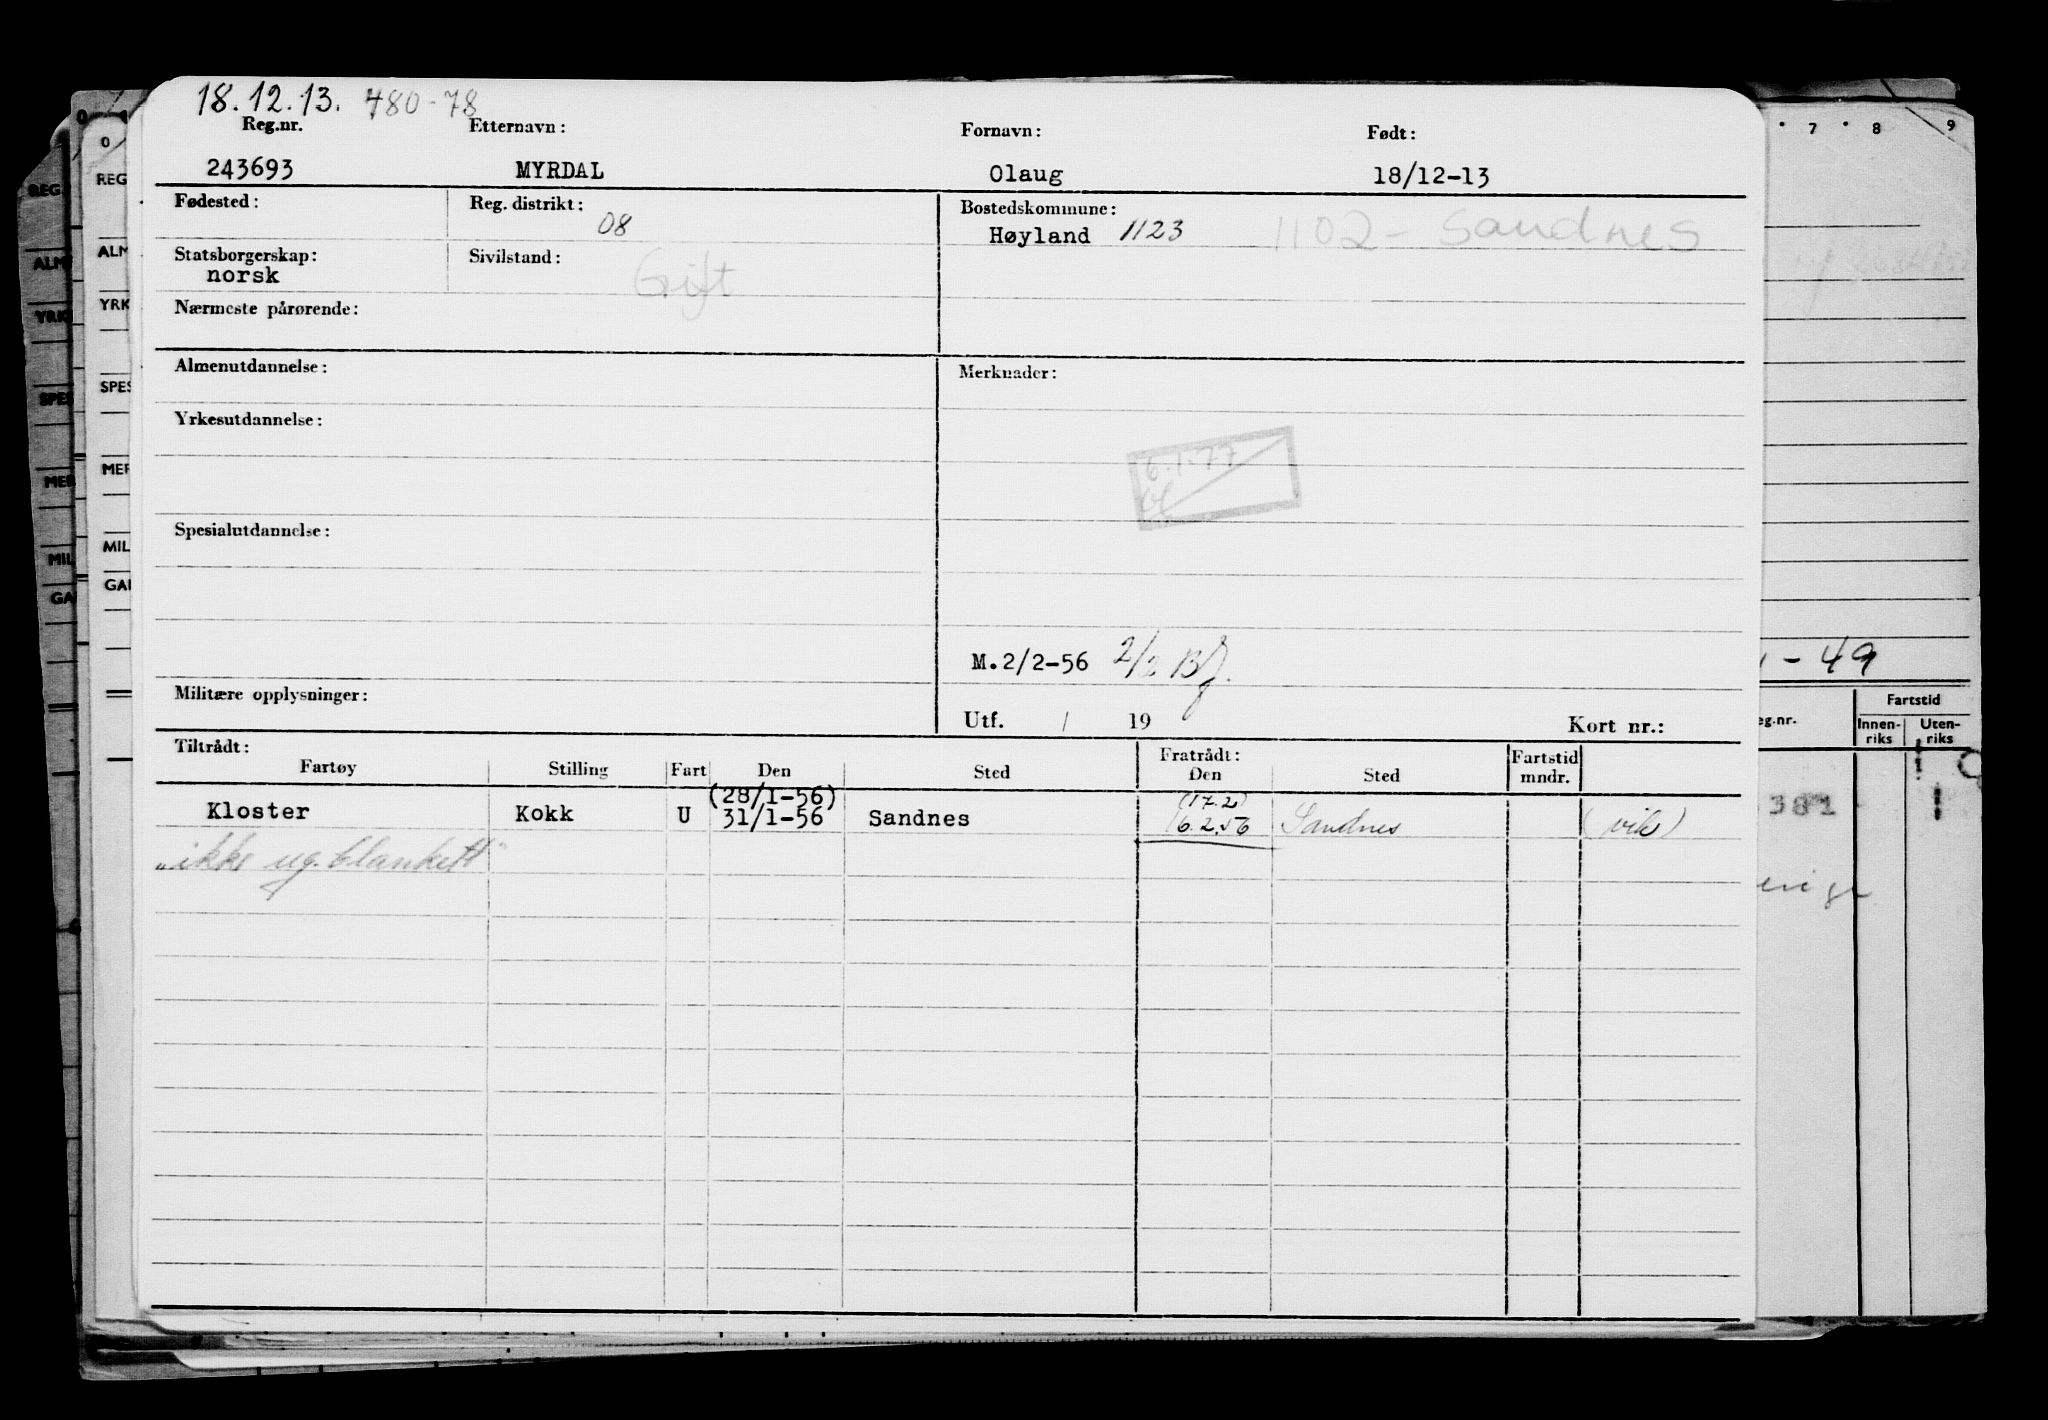 18.12.13. 480-78
Reg.nr. Etternavn: Fornavn: Født:
243693 MYRDAL Olaug 18/12-13
Fødested: Reg. distrikt: 08 Bostedskommune:
Høyland 1123 1102 - Sandnes
Statsborgerskap: Sivilstand: Gift
norsk
Nærmeste pårørende:
Almenutdannelse: Merknader:
Yrkesutdannelse:
6.1.77
Spesialutdannelse:
M.2/2-56 2/2
Militære opplysninger:
Utf. / 19 Kort nr.:
Tiltrådt: Fratrådt:
Fartøy Stilling Fart Den Sted Den Sted Fartstid mndr.
(28/1-56) (17.2)
Kloster Kokk U 31/1-56 Sandnes 16.2.56 Sandnes (vik)
"ikke ug. blankett"
0
REG
ALM
YRK
SPES
MER
MIL
GA
0
REG.
ALM
YRK
SPE
MER
MIL
GA
7 8 9
- 49
eg.nr. Fartstid
Innen-riks Uten-riks
381